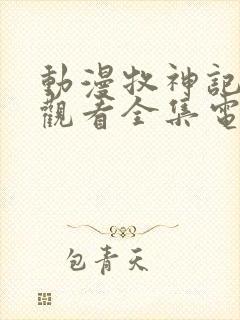 動漫牧神記
觀看全集電
包青天